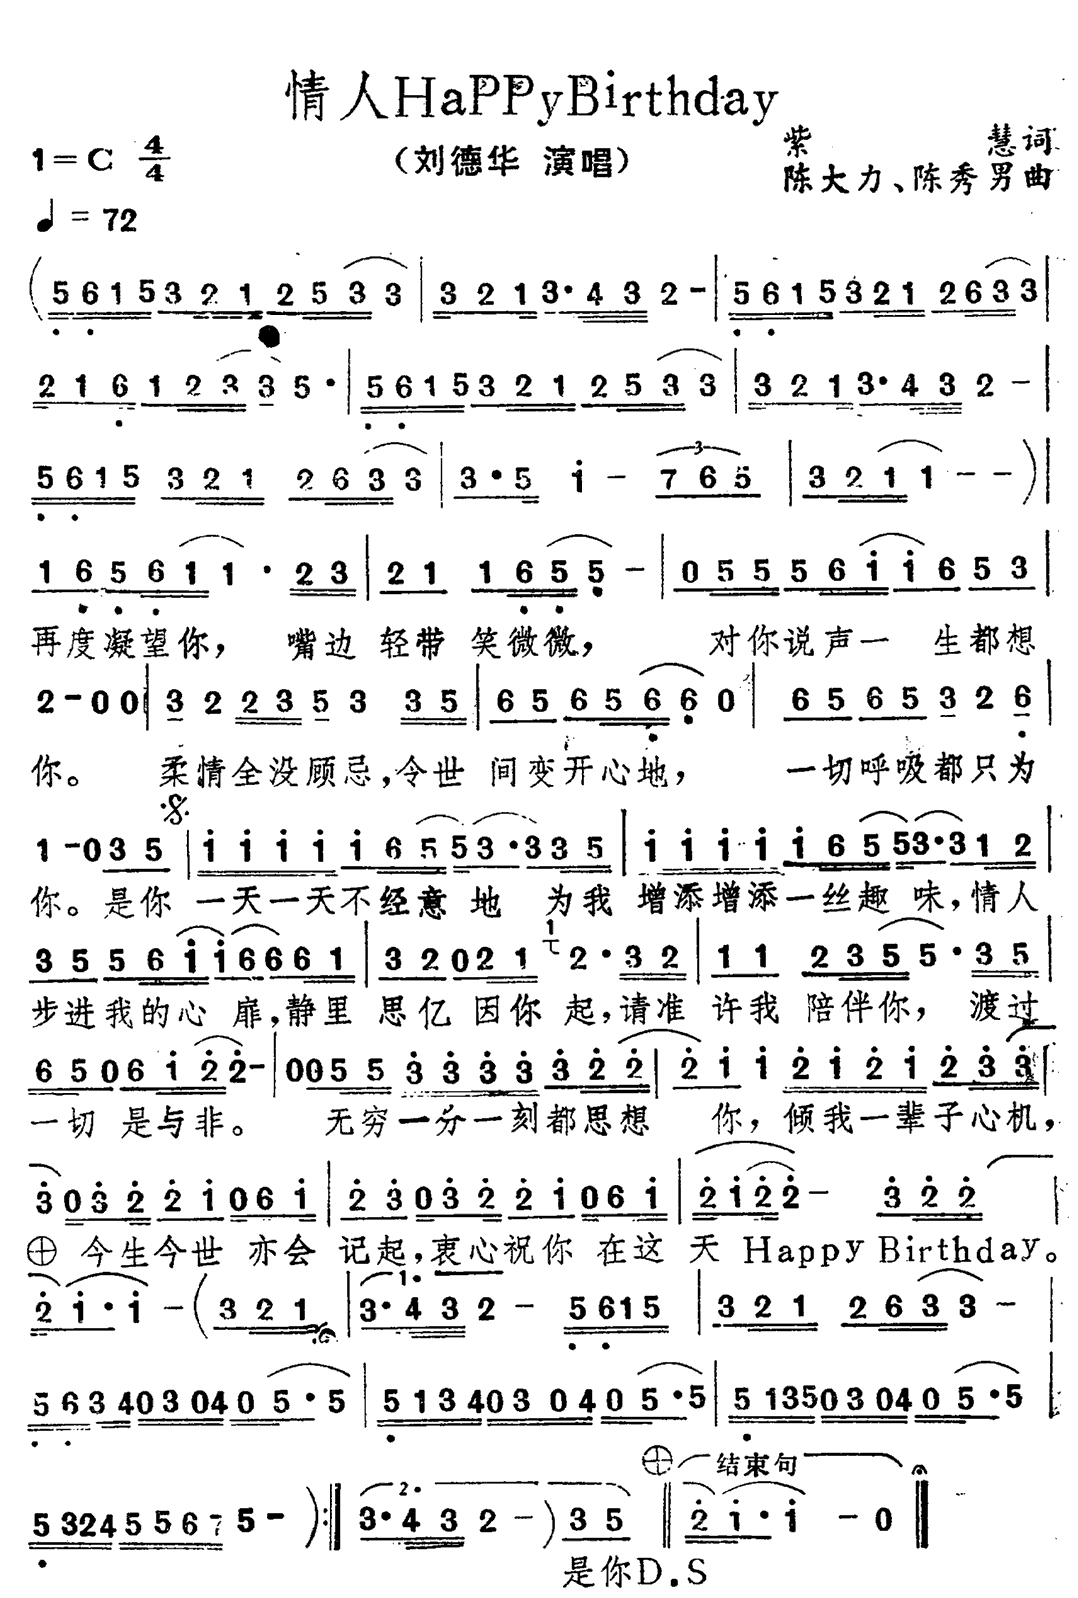 情人HaPPyBirthday
1=C 4/4 (刘德华 演唱) 紫 慧词
陈大力、陈秀男曲
♩=72
(5615321 2533|3213·432-|5615321 2633|
216123 35·|5615321 2533|3213·432-|
5615 321 2633|3·5 i- 765|3211--)|
165611·23|21 1655-|0555 56ii653|
再度凝望你, 嘴边 轻带 笑微微, 对你说声一 生都想
2-00|3223533 35|65 65660|65 65326|
你。 柔情全没顾忌,令世 间变开心地, 一切呼吸都只为
1-035|iiiii6553·335|iiiii6553·312|
你。是你 一天一天不经意 地 为我 增添增添一丝趣 味,情人
35556ii66661|32021 2·32|11 2355·35|
步进我的心 扉,静里 思亿 因你 起,请准 许我 陪伴你, 渡过
6506i22-|0055 3333322|2i i2i2i233|
一切 是与非。 无穷一分一刻都思想 你, 倾我一辈子心机,
30322i06i|230322i06i|2i22- 322|
今生今世 亦会 记起,衷心祝你 在这 天 Happy Birthday。
2i·i-(321|1. 3·432- 5615|321 2633-|
563403040 5·5|513403 040 5·5|513503040 5·5|
53245567 5-):‖2. 3·432-)35‖结束句 2i·i-0‖
是你D.S